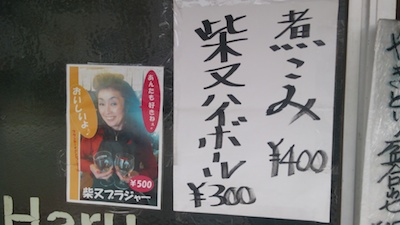 煮こみ
¥400
柴又ハイボール
¥300
あんたも好きね。
おいしいよ。
¥500
柴又ブラジャー
Haru